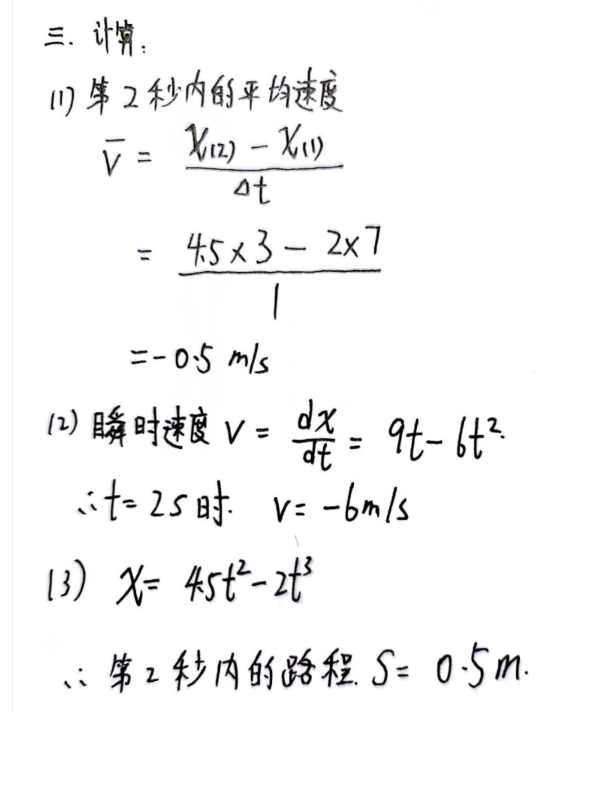 三. 计算:
(1) 第2秒内的平均速度
v̄ = (x(2) - x(1)) / Δt
= (4.5×3 - 2×7) / 1
= -0.5 m/s
(2) 瞬时速度 v = dx/dt = 9t - 6t².
∴ t = 2s 时. v = -6m/s
(3) x = 4.5t² - 2t³
∴ 第2秒内的路程. S = 0.5m.